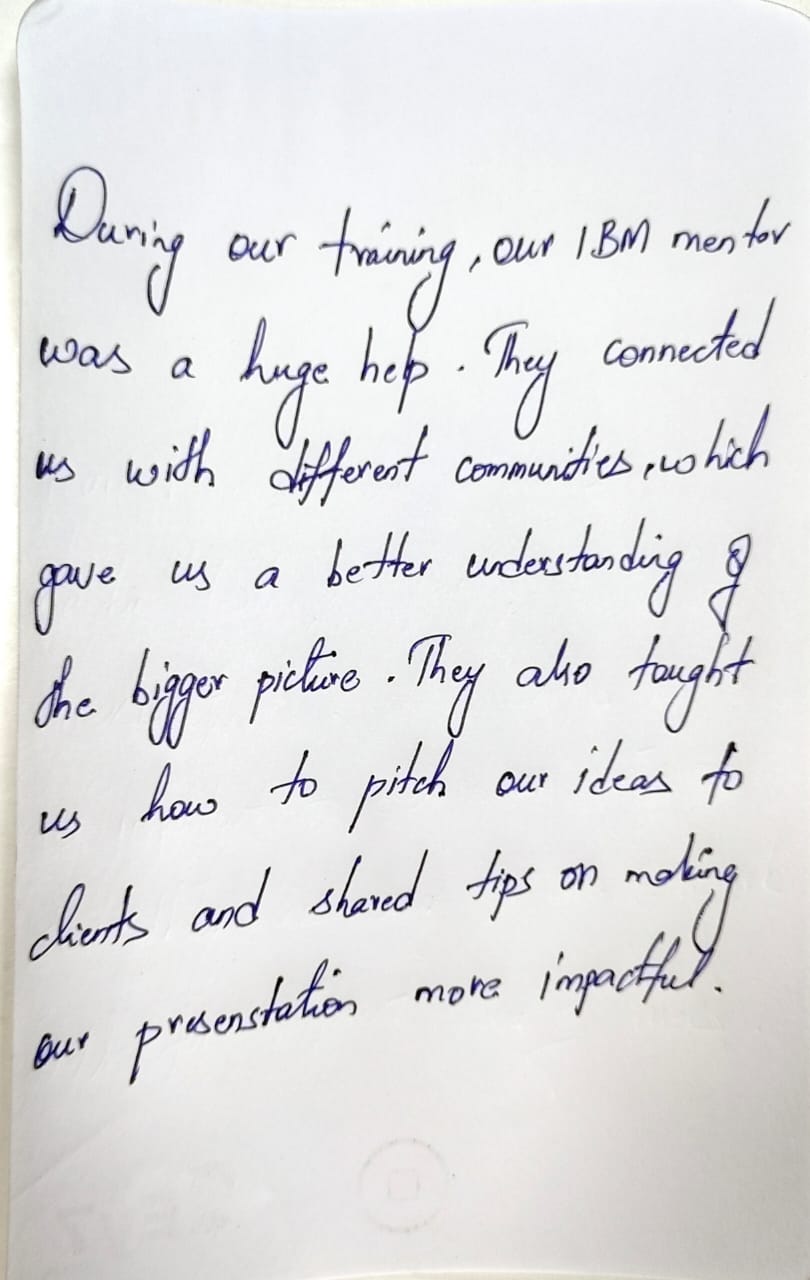 During our training, our IBM mentor
was a huge help. They connected
us with different communities, which
gave us a better understanding of
the bigger picture. They also taught
us how to pitch our ideas to
clients and shared tips on making
our presenstation more impactful.